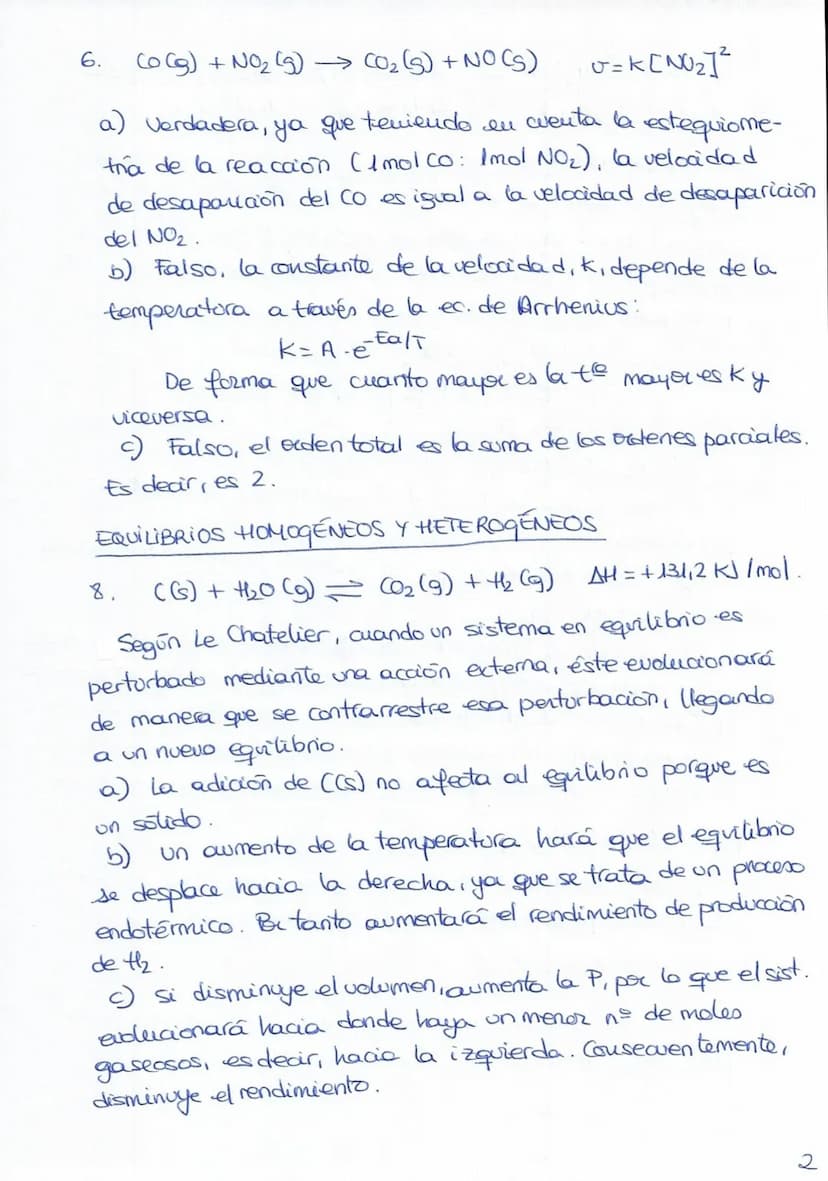 6. CO(g) + NO₂(g) → CO₂(g) + NO(g) v=K[NO₂]²
a) Verdadera, ya que teniendo en cuenta la estequiome-
tría de la reacción (1mol CO: 1mol NO₂), la velocidad
de desaparición del CO es igual a la velocidad de desaparición
del NO₂.
b) Falso, la constante de la velocidad, K, depende de la
temperatura a través de la ec. de Arrhenius:
K= A·e^-Ea/T
De forma que cuanto mayor es la tª mayor es K y
viceversa.
c) Falso, el orden total es la suma de los ordenes parciales.
Es decir, es 2.
EQUILIBRIOS HOMOGÉNEOS Y HETEROGÉNEOS
8. C(s) + H₂O(g) ⇌ CO₂(g) + H₂(g) ΔH = +131,2 KJ/mol.
Según Le Chatelier, cuando un sistema en equilibrio es
perturbado mediante una acción externa, éste evolucionará
de manera que se contrarrestre esa perturbación, llegando
a un nuevo equilibrio.
a) La adición de C(s) no afecta al equilibrio porque es
un sólido.
b) Un aumento de la temperatura hará que el equilibrio
se desplace hacia la derecha, ya que se trata de un proceso
endotérmico. Por tanto aumentará el rendimiento de producción
de H₂.
c) Si disminuye el volumen, aumenta la P, por lo que el sist.
evolucionará hacia donde haya un menor nº de moles
gaseosos, es decir, hacia la izquierda. Consecuentemente,
disminuye el rendimiento.
2